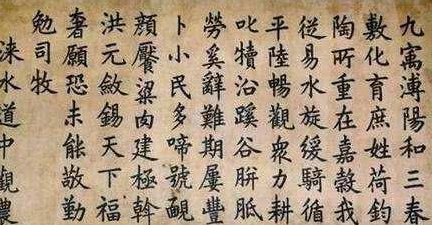 九寓溥陽和三春
敷化育庶姓荷鈞
陶所重在嘉穀我
從易水旋緩騎循
平陸暢觀衆力耕
叱犢沿蹊谷胼胝
勞奚辭難期屢豐
卜小民多啼號靦
顏饜粱肉建極斡
洪元斂錫天下福
奢願恐未能敬勤
勉司牧
淶水道中觀農